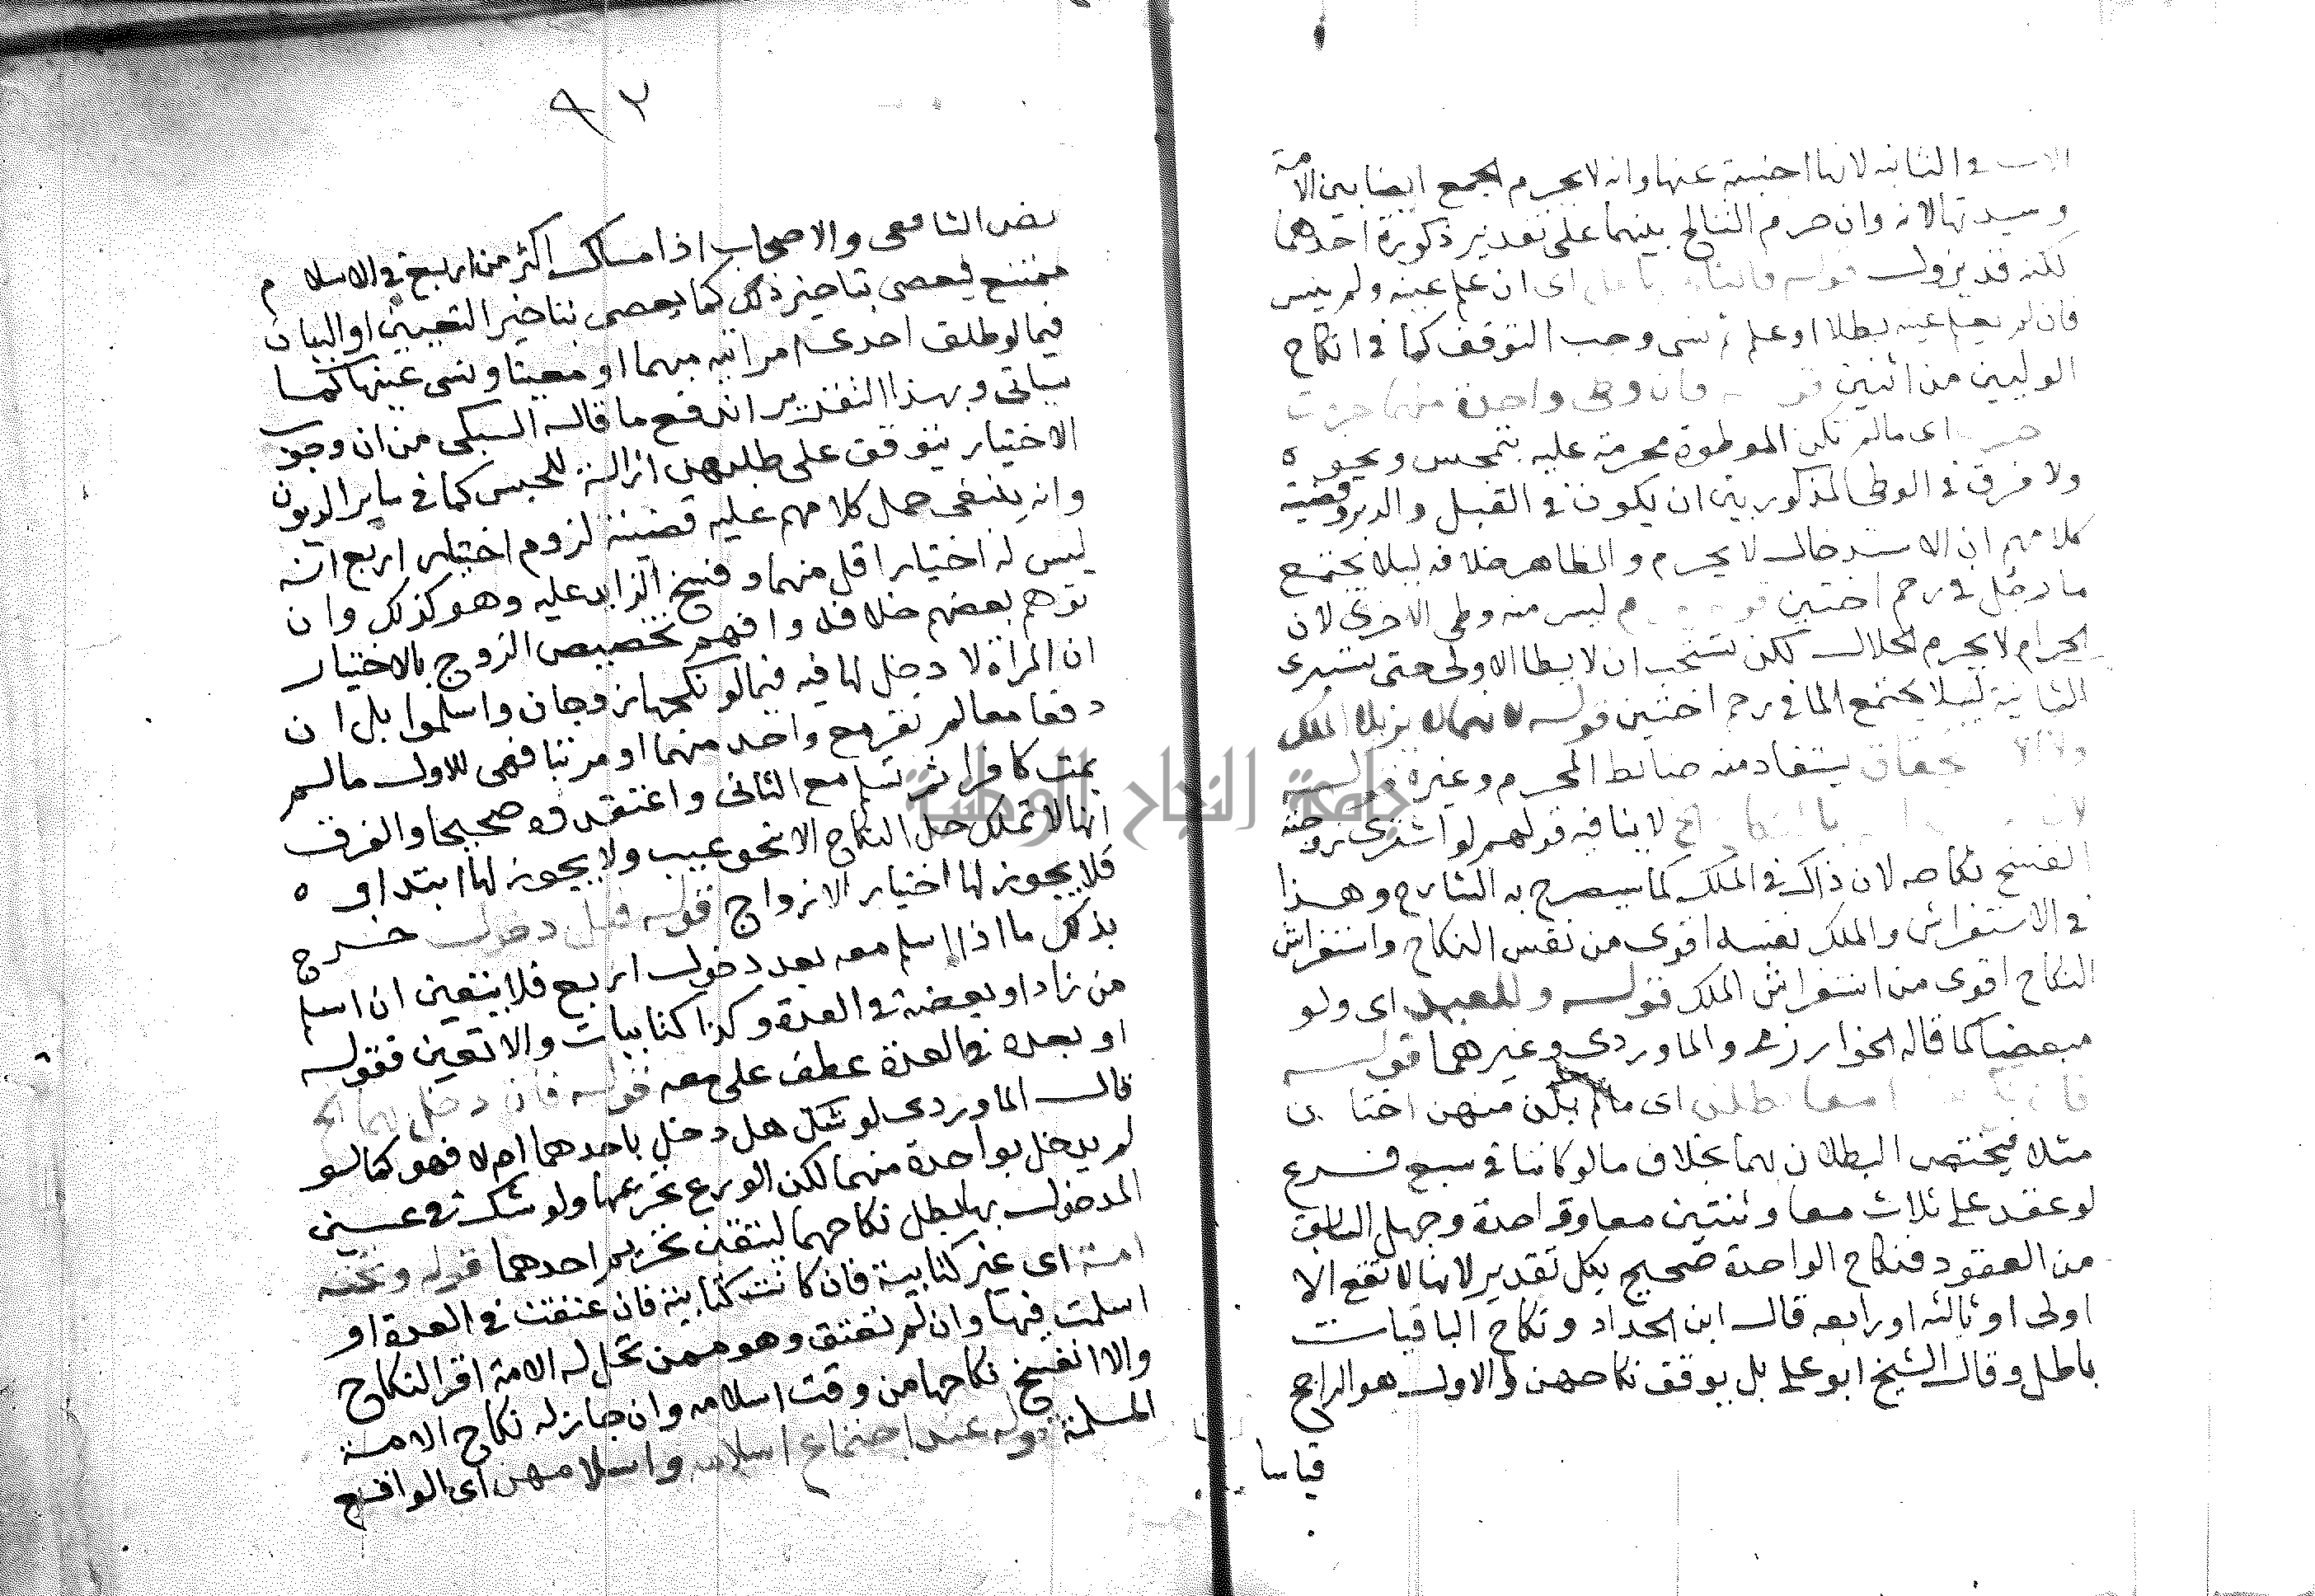 في الثانية لانها اجنبية عنها وانه لا يحرم الجمع ايضا بين الامة
وسيدتها لانه وان حرم التناكح بينهما على تقدير ذكورة احدهما
لكنه قد يزول قوله اي ان علم عينه ولم ينس
فان لم يعلم عينه بطلا او علم ثم نسي وجب التوقف كما في انكاح
الوليين من اثنين فان وطى واحدة منهما حرمت
اى مالم تكن الموطوة محرمة عليه بتمجس ونحوه
ولا فرق في الوطى المذكور بين ان يكون في القبل والدبر وقضية
كلامهم ان الاستدخال لا يحرم والظاهر خلافه ليلا يجتمع
ما دخل في رحم اختين ليس منه وطى الاخرى لان
الحرام لا يحرم الحلال لكن تستحب ان لا يطا الاولى حتى تستبرى
الثانية ليلا يجتمع الما في رحم اختين قوله الملك
يستفاد منه ضابط المحرم وغيره قوله
لا ينافيه قولهم لو اشترى زوجته
انفسخ نكاحه لان ذاك في الملك كما سيصرح به الشارح وهذا
في الاستفراش والملك نفسه اقوى من نفس النكاح واستفراش
النكاح اقوى من استفراش الملك قوله وللعبد اى ولو
مبعضا كما قاله الخوارزمى والماوردى وغيرهما قوله
معا بطلن اى مالم يكن منهن اختان
مثلا فيختص البطلان بهما بخلاف ما لو كانتا في سبع فرع
لو عقد على ثلاث معا وثنتين معا وواحدة وجهل السابق
من العقود فنكاح الواحدة صحيح بكل تقدير لانها لا تقع الا
اولى او ثالثه او رابعه قال ابن الحداد ونكاح الباقيات
باطل وقال الشيخ ابو على بل يوقف نكاحهن والاول هو الراجح
قياسا
٩٢
نص الشافعى والاصحاب اذ امساك اكثر من اربع في الاسلام
ممتنع فيعصى بتاخير ذلك كما يعصى بتاخير التعيين او البيان
فيما لو طلق احدى امراتيه مبهما او معينا ونسى عينها كما
سياتى وبهذا التقدير اندفع ما قاله السبكى من ان وجوب
الاختيار يتوقف على طلبهن ازالة للحبس كما في ساير الديون
وانه ينبغى حمل كلامهم عليه قضية لزوم اختيار اربع انه
ليس له اختيار اقل منهما وفسخ الزايد عليه وهو كذلك وان
توهم بعضهم خلافه وافهم تخصيص الزوج بالاختيار
ان المراة لا دخل لها فيه فيما لو نكحها زوجان واسلموا بل ان
دفعا معا لم تقر مع واحد منهما او مرتبا فهى للاول مالم
يمت كافرا ثم تسلم مع الثانى واعتقدوه صحيحا والفرق
انها لا تملك حل النكاح الا بنحو عيب ولا يجوز لها ابتداوه
فلا يجوز لها اختيار الازواج قوله قبل دخول خرج
بذلك ما اذا اسلم معه بعد دخول اربع فلا يتعين ان اسلم
من زاد او بعضه في العدة وكذا كتابيات والا تعين فقوله
او بعده في العدة عطف على معه قوله فان دخل بهما الخ
قال الماوردى لو شك هل دخل باحدهما ام لا فهو كما لو
لم يدخل بواحدة منهما لكن الورع تحريمها ولو شك في عين
المدخول بها بطل نكاحهما لتيقن تحريم احدهما قوله وتحته
امة اى غير كتابية فان كانت كتابية فان عتقت في العدة او
اسلمت فيها وان لم تعتق وهو ممن تحل له الامة اقر النكاح
والا انفسخ نكاحها من وقت اسلامه وان جاز له نكاح الامة
المسلمة قوله عند اجتماع اسلامه واسلامهن اى الواقع
جامعة النجاح الوطنية